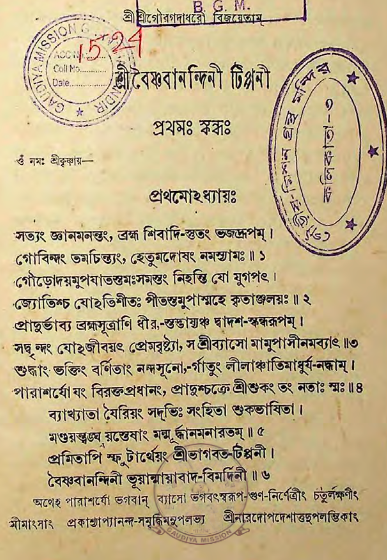 B. G. M.
শ্রীশ্রীগৌরগদাধরৌ বিজয়েতাম্
GAUDIYA MISSION
15-24
ACC No.
Call No.
Date
শ্রীবৈষ্ণবানন্দিনী টিপ্পনী
প্রথমঃ স্কন্ধঃ
ওঁ নমঃ শ্রীকৃষ্ণায়—
প্রথমোঽধ্যায়ঃ
সত্যং জ্ঞানমনন্তং, ব্রহ্ম শিবাদি-স্তুতং ভজদ্রূপম্।
গোবিন্দং তমচিন্ত্যং, হেতুমদোষং নমস্যামঃ॥ ১
গৌড়োদয়মুপযাতস্তমঃসমস্তং নিহন্তি যো যুগপৎ।
জ্যোতিশ্চ যোঽতিশীতঃ পীতস্তমুপাস্মহে কৃতাঞ্জলয়ঃ॥ ২
প্রাদুর্ভাব্য ব্রহ্মসূত্রাণি ধীর,-স্তদ্ভায়ঞ্চ দ্বাদশ-স্কন্ধরূপম্।
সদ্বৃন্দং যোঽজীবয়ৎ প্রেমবৃষ্ট্যা, স শ্রীব্যাসো মামুপাসীনমব্যাৎ॥৩
শুদ্ধাং ভক্তিং বর্ণিতাং নন্দসূনো,-র্গাতুং লীলাঞ্চাতিমাধুর্য-নদ্ধাম্।
পারাশর্যো যং বিরক্তপ্রধানং, প্রাদুশ্চক্রে শ্রীশুকং তং নতাঃ স্মঃ॥৪
ব্যাখ্যাতা যৈরিয়ং সদ্ভিঃ সংহিতা শুকভাষিতা।
মণ্ডয়ন্ত্বঙ্ঘ্রয়স্তেষাং মন্মূর্দ্ধানমনারতম্॥ ৫
প্রমিতাপি স্ফুটার্থেয়ং শ্রীভাগবত-টিপ্পনী।
বৈষ্ণবানন্দিনী ভূয়ান্মায়াবাদ-বিমর্দিনী॥ ৬
অথেহ পারাশর্যো ভগবান্ ব্যাসো ভগবৎস্বরূপ-গুণ-নির্ণেত্রীং চতুর্লক্ষণীং
মীমাংসাং প্রকাশ্যাপ্যানন্দ-সমৃদ্ধিমনুপলভ্য শ্রীনারদোপদেশাত্তদুপলম্ভিকাং